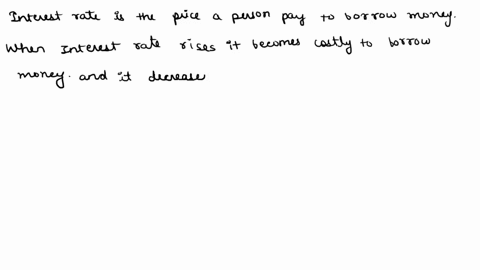 Interest rate is the price a person pay to borrow money.
When Interest rate rises it becomes costly to borrow
money. and it decrease